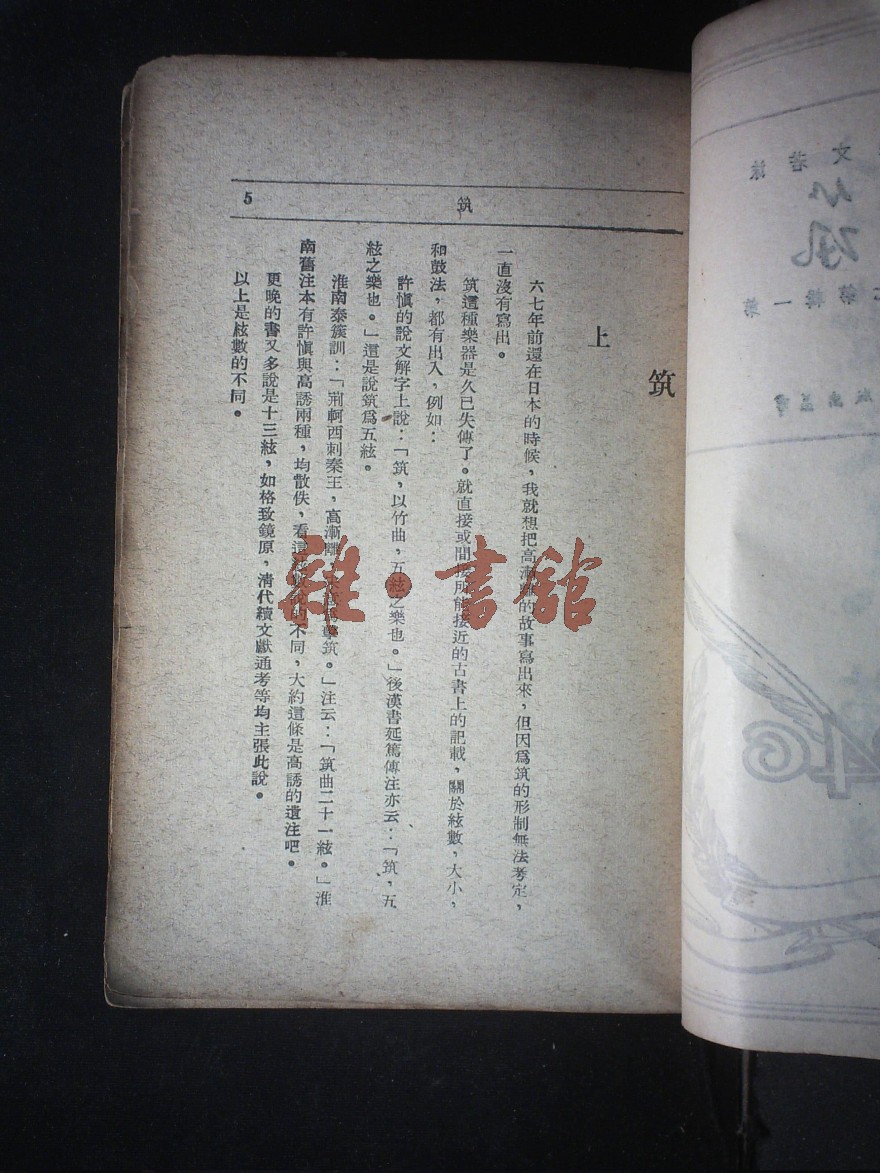 5
筑
筑
上
六七年前還在日本的時候，我就想把高漸離的故事寫出來，但因爲筑的形制無法考定，
一直沒有寫出。
筑這種樂器是久已失傳了。就直接或間接所能接近的古書上的記載，關於絃數，大小，
和鼓法，都有出入，例如：
許愼的說文解字上說：「筑，以竹曲，五絃之樂也。」後漢書延篤傳注亦云：「筑，五
絃之樂也。」這是說筑爲五絃。
淮南泰簇訓：「荆軻西刺秦王，高漸離擊筑。」注云：「筑曲二十一絃。」淮
南舊注本有許愼與高誘兩種，均散佚，看這說的不同，大約這條是高誘的遺注吧。
更晚的書又多說是十三絃，如格致鏡原，清代續文獻通考等均主張此說。
以上是絃數的不同。
雜·書館